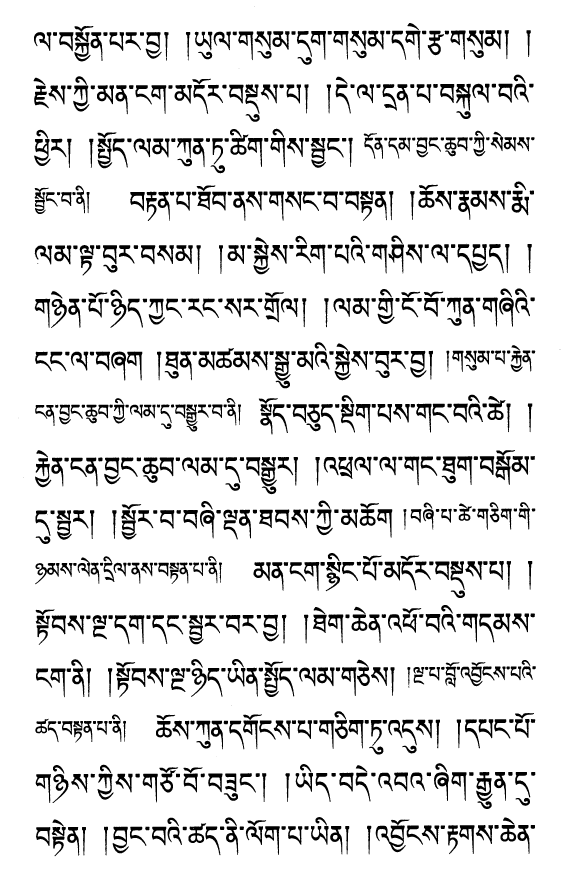 ལ་བསྐྱོན་པར་བྱ། །ཡུལ་གསུམ་དུག་གསུམ་དགེ་རྩ་གསུམ། །
རྗེས་ཀྱི་མན་ངག་མདོར་བསྡུས་པ། །དེ་ལ་དྲན་པ་བསྐུལ་བའི་
ཕྱིར། །སྤྱོད་ལམ་ཀུན་ཏུ་ཚིག་གིས་སྦྱང༌། དོན་དམ་བྱང་ཆུབ་ཀྱི་སེམས་
སྦྱོང་བ་ནི། བརྟན་པ་ཐོབ་ནས་གསང་བ་བསྟན། །ཆོས་རྣམས་རྨི་
ལམ་ལྟ་བུར་བསམ། །མ་སྐྱེས་རིག་པའི་གཤིས་ལ་དཔྱད། །
གཉེན་པོ་ཉིད་ཀྱང་རང་སར་གྲོལ། །ལམ་གྱི་ངོ་བོ་ཀུན་གཞིའི་
ངང་ལ་བཞག །ཐུན་མཚམས་སྒྱུ་མའི་སྐྱེས་བུར་བྱ། །གསུམ་པ་རྐྱེན་
ངན་བྱང་ཆུབ་ཀྱི་ལམ་དུ་བསྒྱུར་བ་ནི། སྣོད་བཅུད་སྡིག་པས་གང་བའི་ཚེ། །
རྐྱེན་ངན་བྱང་ཆུབ་ལམ་དུ་བསྒྱུར། །འཕྲལ་ལ་གང་ཐུག་བསྒོམ་
དུ་སྦྱར། །སྦྱོར་བ་བཞི་ལྡན་ཐབས་ཀྱི་མཆོག །བཞི་པ་ཚེ་གཅིག་གི་
ཉམས་ལེན་དྲིལ་ནས་བསྟན་པ་ནི། མན་ངག་སྙིང་པོ་མདོར་བསྡུས་པ། །
སྟོབས་ལྔ་དག་དང་སྦྱར་བར་བྱ། །ཐེག་ཆེན་འཕོ་བའི་གདམས་
ངག་ནི། །སྟོབས་ལྔ་ཉིད་ཡིན་སྤྱོད་ལམ་གཅེས། །ལྔ་པ་བློ་འབྱོངས་པའི་
ཚད་བསྟན་པ་ནི། ཆོས་ཀུན་དགོངས་པ་གཅིག་ཏུ་འདུས། །དཔང་པོ་
གཉིས་ཀྱིས་གཙོ་བོ་བཟུང༌། །ཡིད་བདེ་འབའ་ཞིག་རྒྱུན་དུ་
བསྟེན། །བྱང་བའི་ཚད་ནི་ལོག་པ་ཡིན། །འབྱོངས་རྟགས་ཆེན་